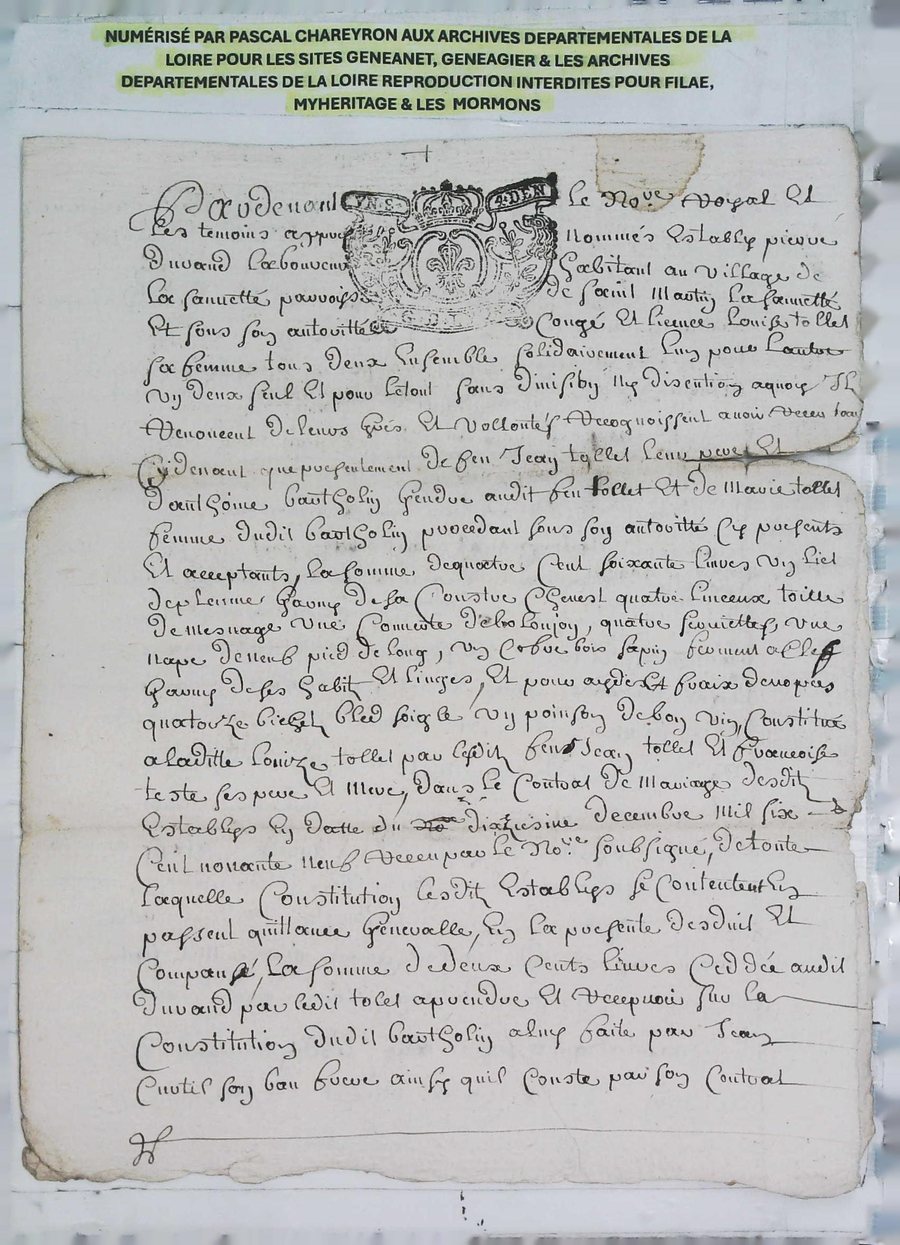 NUMÉRISÉ PAR PASCAL CHAREYRON AUX ARCHIVES DEPARTEMENTALES DE LA
LOIRE POUR LES SITES GENEANET, GENEAGIER & LES ARCHIVES
DEPARTEMENTALES DE LA LOIRE REPRODUCTION INTERDITES POUR FILAE,
MYHERITAGE & LES MORMONS
Pardevant VN.S. 4.DEN le No.re Royal Et
Les temoins appres nommés Establys pierre
Durand Laboureur habitant au village de
La sauvetté parroisse de saint Martin La sauvetté
Et sous son autoritté Congé Et licence Louise tollet
sa femme tous deux Ensemble solidairement l'un pour L'autre
un deux seul Et pour le tout sans division ny discution aquoy Ils
Renoncent de leurs grés Et vollontés Recognoissent avoir Receu
Cydevant que presentement de feu Jean tollet leur pere Et
d'anthoine bartholin gendre audit feu tollet Et de Marie tollet
femme dudit bartholin procedant sous son autoritté Cy presents
Et acceptants, La somme de quatre Cent soixante livres un lict
de plenme garny de sa Constre Chevest quatre linceux toille
de mesnage une Couverte de balonjon, quatre serviettes, une
nape de neuf pied de long, un Cofre bois sapin fermant a Clef
garny de ses habitz Et linges, Et pour ayder Et fraix de nopces
quatorze bichetz bled soigle un poinson de bon vin, Constitué
a laditte Louize tollet par lesditz feu Jean tollet Et francoise
teste ses pere Et Mere, dans le Contrat de Mariage desditz
Establys En datte du dixiesme decembre Mil six
Cent nonante neuf Receu par le No.re soubsigné, de toute
Laquelle Constitution lesditz Establys se Contentent En
passent quittance generalle, En La presente desduit Et
Compansé, La somme de deux Cents livres Ceddée audit
durand par ledit tolet a prendre Et Recepvoir sur la
Constitution dudit bartholin a luy faite par Jean
Cuutil son bau frere ainsy quil Conste par son Contrat